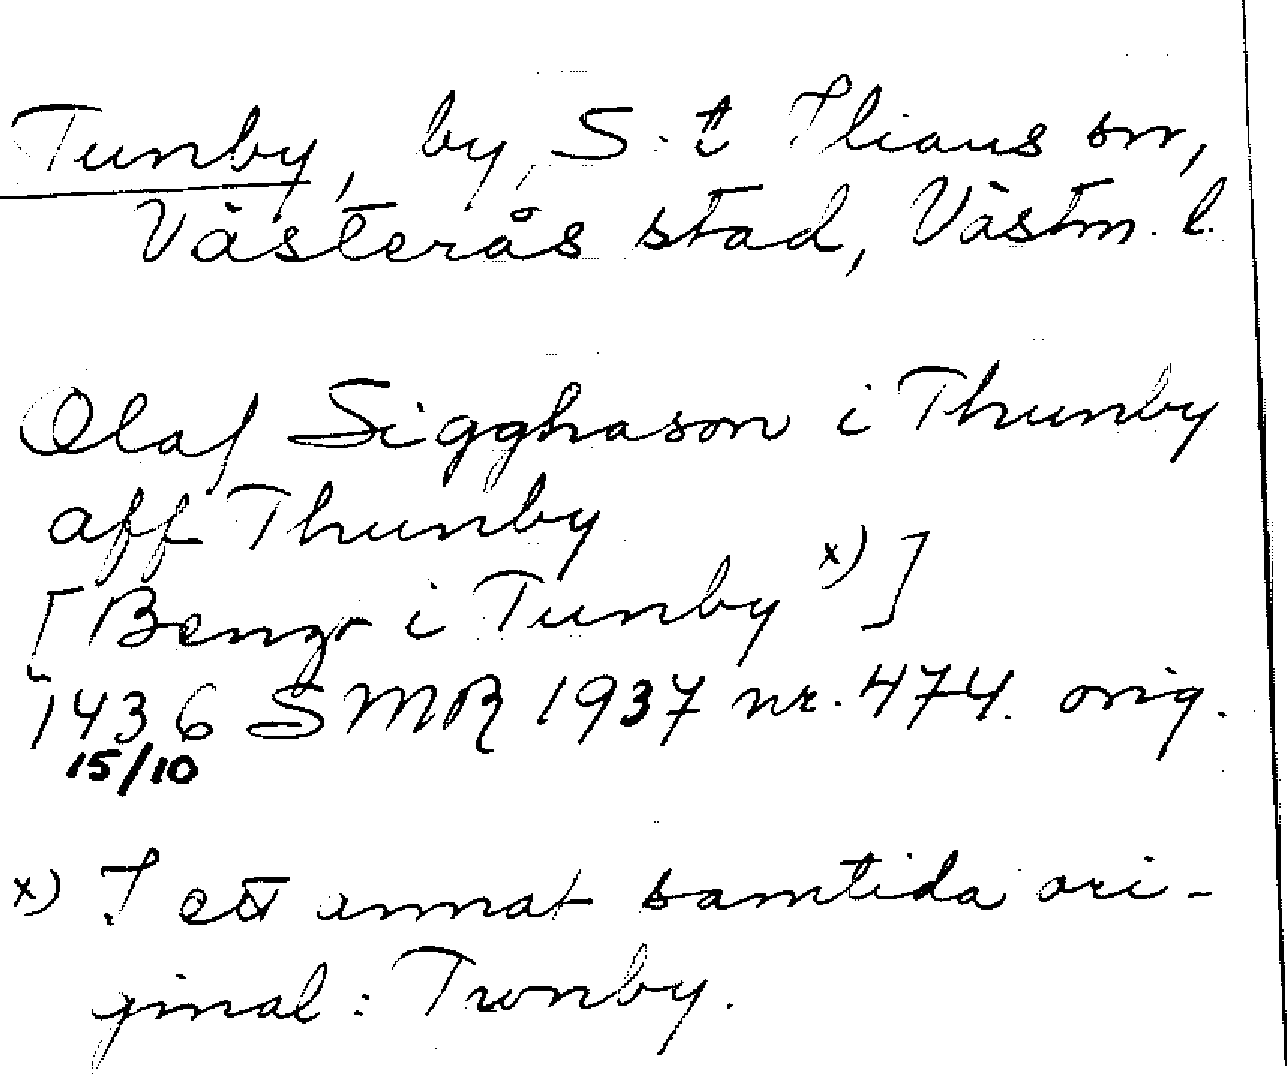 Tunby, by, S:t Ilians sn,
Västerås stad, Västm. l.
Olaf Sigghason i Thunby
aff Thunby
[Bengt i Tunby x)]
1436 SMR 1937 nr. 474. orig.
15/10
x) I ett annat samtida ori-
ginal: Twnby.